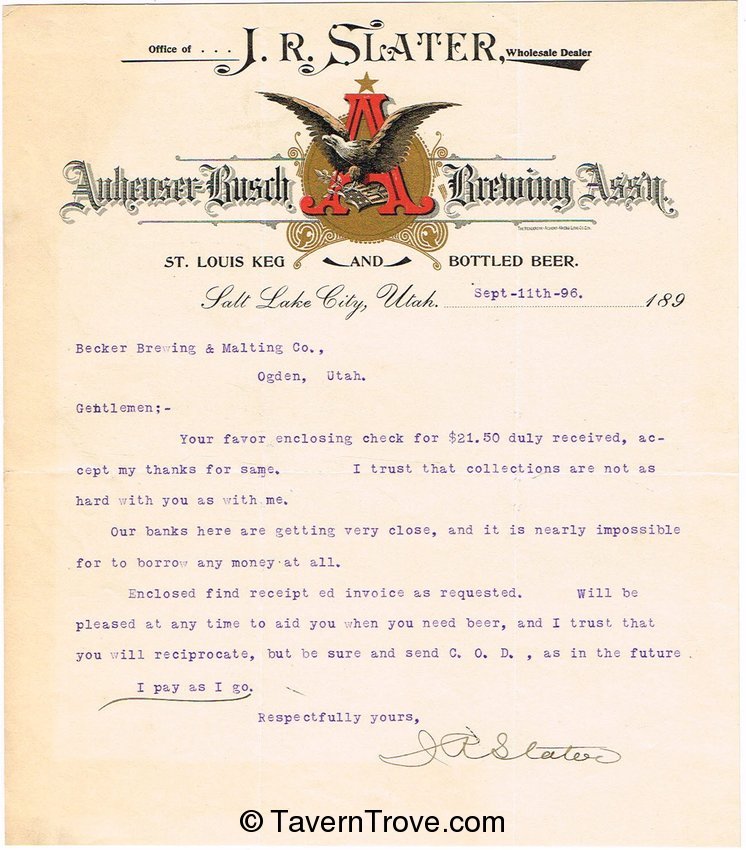 Office of . . . J. R. SLATER, Wholesale Dealer
A
Anheuser-Busch Brewing Ass'n.
ST. LOUIS KEG AND BOTTLED BEER.
Salt Lake City, Utah. Sept-11th-96. 189
Becker Brewing & Malting Co.,
Ogden, Utah.
Gentlemen;-
Your favor enclosing check for $21.50 duly received, ac-
cept my thanks for same. I trust that collections are not as
hard with you as with me.
Our banks here are getting very close, and it is nearly impossible
for to borrow any money at all.
Enclosed find receipt ed invoice as requested. Will be
pleased at any time to aid you when you need beer, and I trust that
you will reciprocate, but be sure and send C. O. D. , as in the future
I pay as I go.
Respectfully yours,
J R Slater
© TavernTrove.com